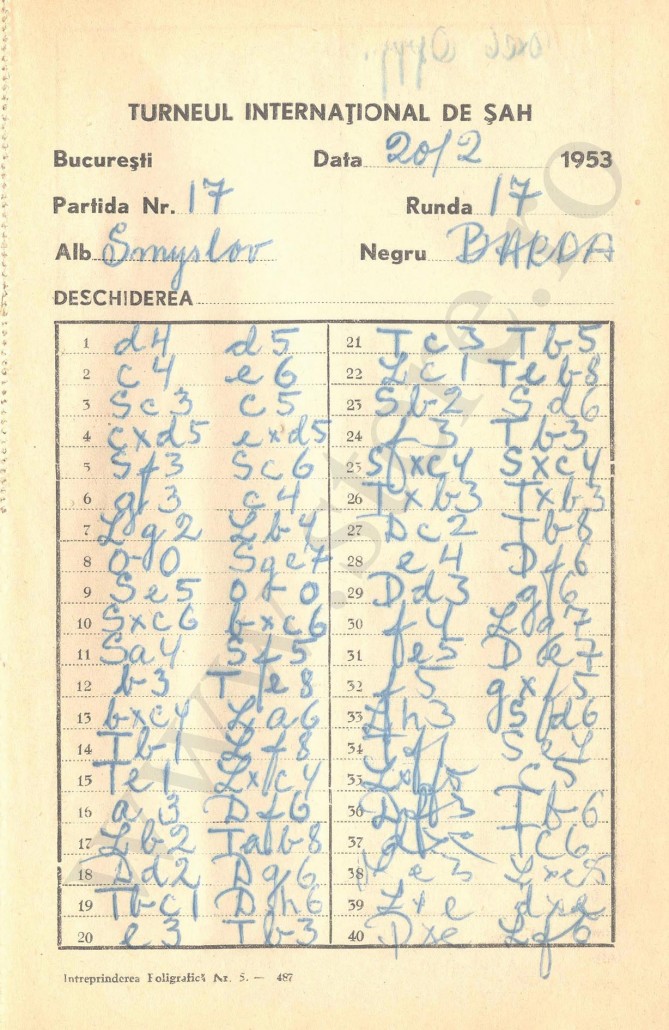 TURNEUL INTERNAȚIONAL DE ȘAH
București Data 20/2 1953
Partida Nr. 17 Runda 17
Alb Smyslov Negru BARDA
DESCHIDEREA
1 d4 d5 21 Tc3 Tb5
2 c4 e6 22 Lc1 Teb8
3 Sc3 c5 23 Sb2 Sd6
4 cxd5 exd5 24 f3 Tb3
5 Sf3 Sc6 25 Sxc4 Sxc4
6 g3 c4 26 Txb3 Txb3
7 Lg2 Lb4 27 Dc2 Tb8
8 0-0 Sge7 28 e4 Df6
9 Se5 0-0 29 Dd3 g6
10 Sxc6 bxc6 30 f4 Lg7
11 Sa4 Sf5 31 e5 De7
12 b3 Te8 32 f5 gxf5
13 bxc4 La6 33 Lh3
14 Tb1 Lf8 34
15 Te1 Lxc4 35 c5
16 a3 Df6 36 Tb6
17 Lb2 Tab8 37 Tc6
18 Dd2 Dg6 38 Lxe5
19 Tbc1 Dh6 39 Lxe dxe
20 e3 Tb3 40 Dxe Lf6
Intreprinderea Poligrafică Nr. 5. — 487
www.stere.ro